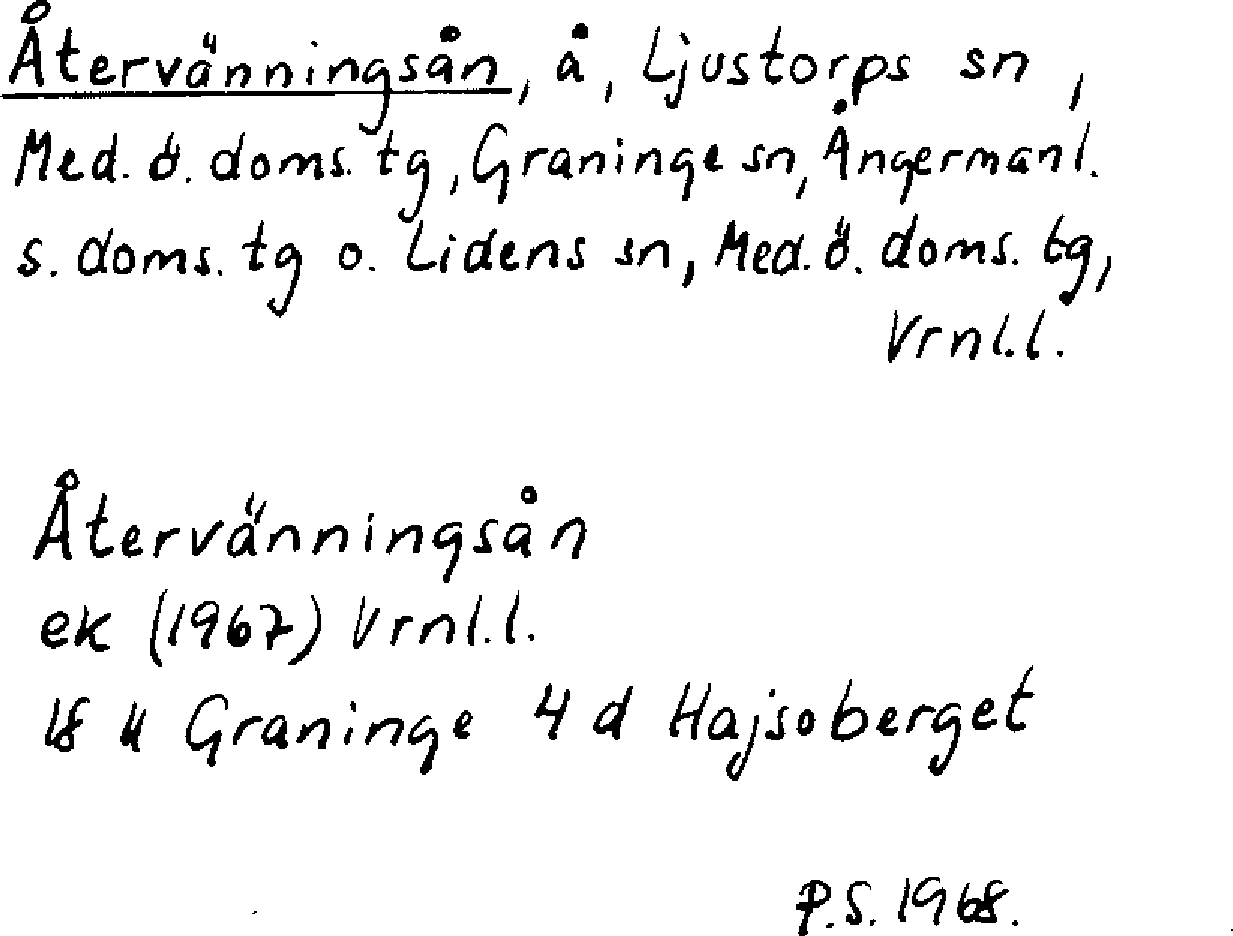 Återvänningsån, å, Ljustorps sn,
Med. ö. doms. tg, Graninge sn, Ångermanl.
s. doms. tg o. Lidens sn, Med. ö. doms. tg,
Vrnl.l.
Återvänningsån
ek (1967) Vrnl.l.
Graninge 4 d Hajsoberget
P.S. 1968.